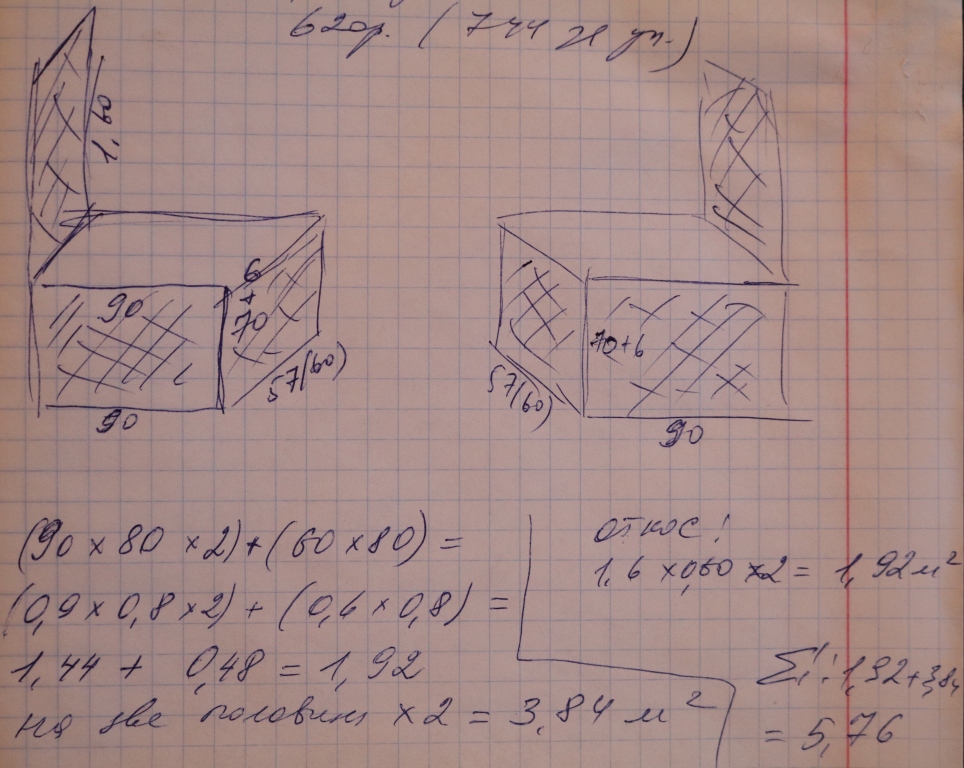 620р. (744 зе уп.)
1,60
90
6
+
70
57(60)
90
70+6
57(60)
90
(90 × 80 × 2) + (60 × 80) =
(0,9 × 0,8 × 2) + (0,6 × 0,8) =
1,44 + 0,48 = 1,92
на две половины × 2 = 3,84 м²
откос!
1,6 × 0,60 × 2 = 1,92 м²
Σ: 1,92 + 3,84
= 5,76